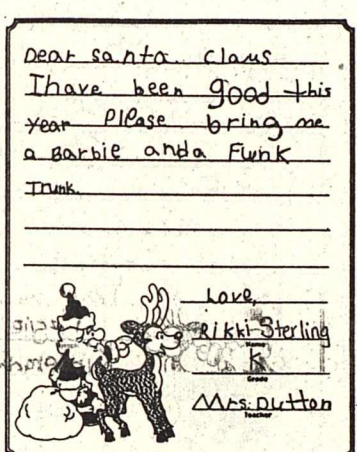 Dear santa. claus
I have been good this
year Please bring me
a Barbie and a Funk
Trunk.
Love,
Rikki Sterling
Name
K
Grade
Mrs. Dutton
Teacher